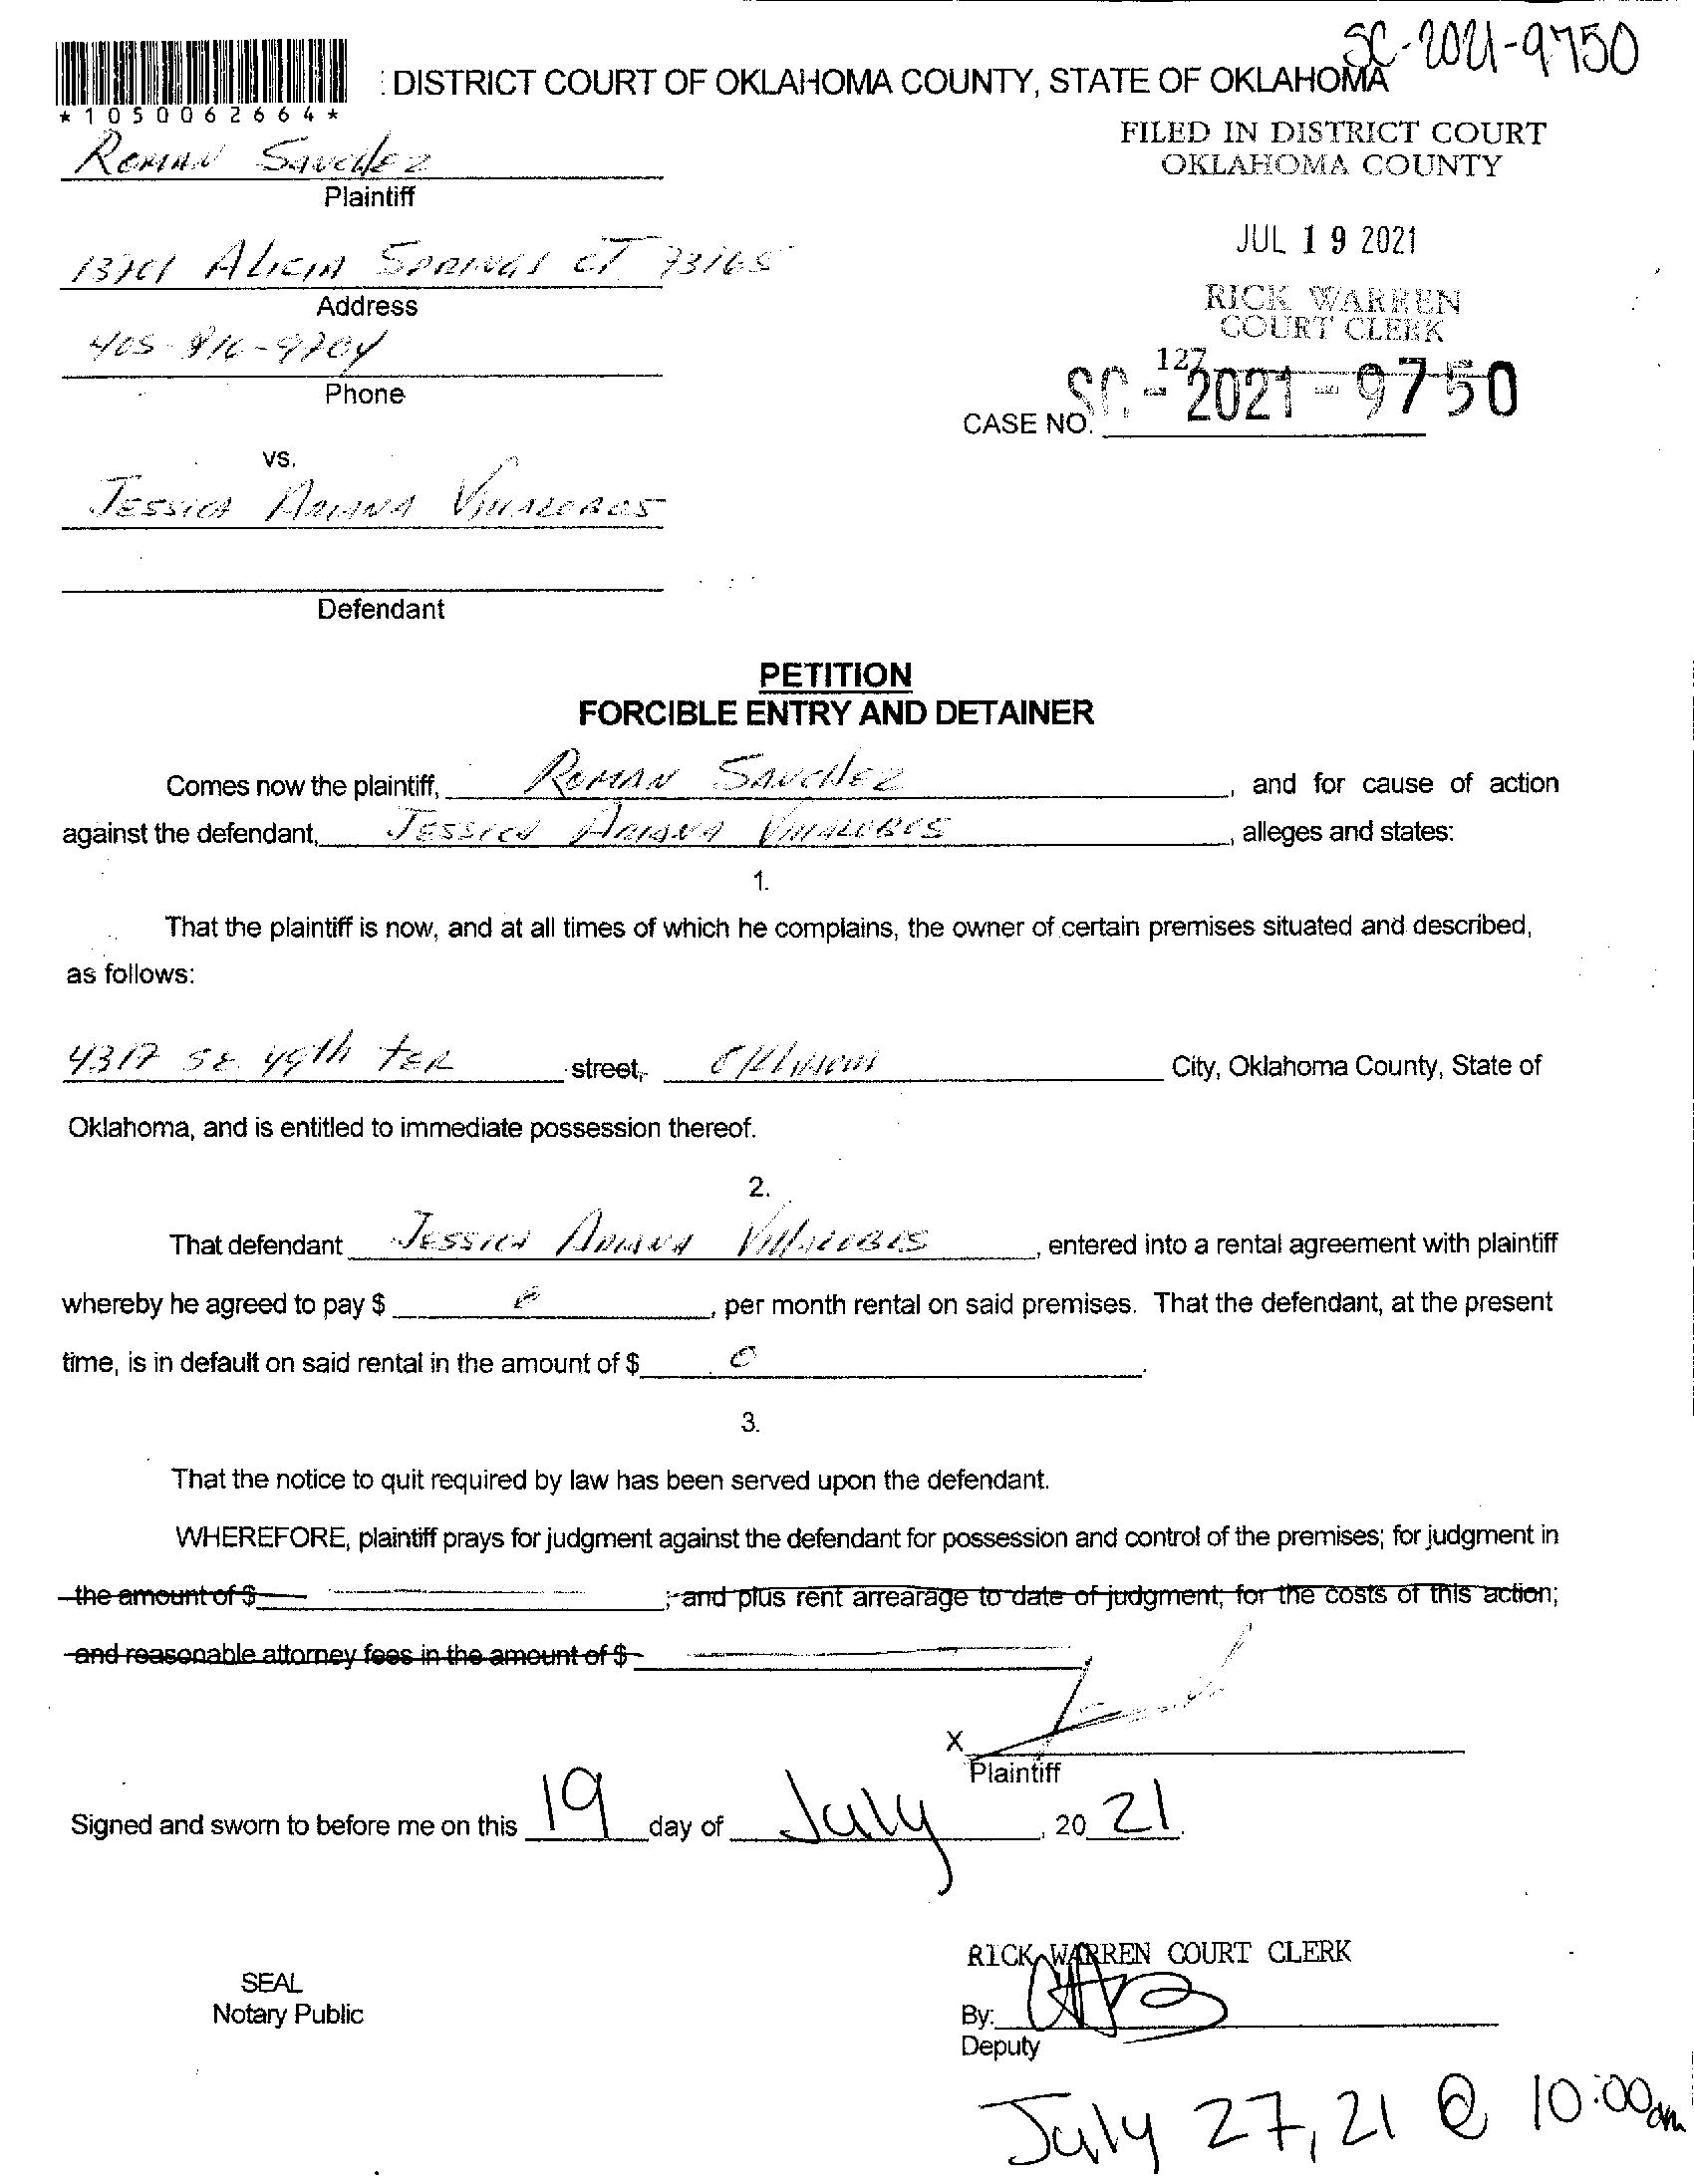 SC-2021-9750
: DISTRICT COURT OF OKLAHOMA COUNTY, STATE OF OKLAHOMA
*1050062664*
FILED IN DISTRICT COURT
OKLAHOMA COUNTY
ROMAN SANCHEZ
Plaintiff
JUL 19 2021
ALICIA SPRINGS CT
Address
RICK WARREN
COURT CLERK
405-
Phone
127
CASE NO. SC-2021-9750
vs.
JESSICA ARIANA VILLALOBOS
Defendant
PETITION
FORCIBLE ENTRY AND DETAINER
Comes now the plaintiff, ROMAN SANCHEZ, and for cause of action
against the defendant, JESSICA ARIANA VILLALOBOS, alleges and states:
1.
That the plaintiff is now, and at all times of which he complains, the owner of certain premises situated and described,
as follows:
4317 SE 49th TER street, City, Oklahoma County, State of
Oklahoma, and is entitled to immediate possession thereof.
2.
That defendant JESSICA ARIANA VILLALOBOS, entered into a rental agreement with plaintiff
whereby he agreed to pay $ 0, per month rental on said premises. That the defendant, at the present
time, is in default on said rental in the amount of $ 0.
3.
That the notice to quit required by law has been served upon the defendant.
WHEREFORE, plaintiff prays for judgment against the defendant for possession and control of the premises; for judgment in
the amount of $ ; and plus rent arrearage to date of judgment; for the costs of this action;
and reasonable attorney fees in the amount of $
X
Plaintiff
Signed and sworn to before me on this 19 day of July, 20 21.
RICK WARREN COURT CLERK
SEAL
Notary Public
By:
Deputy
July 27, 21 @ 10:00am